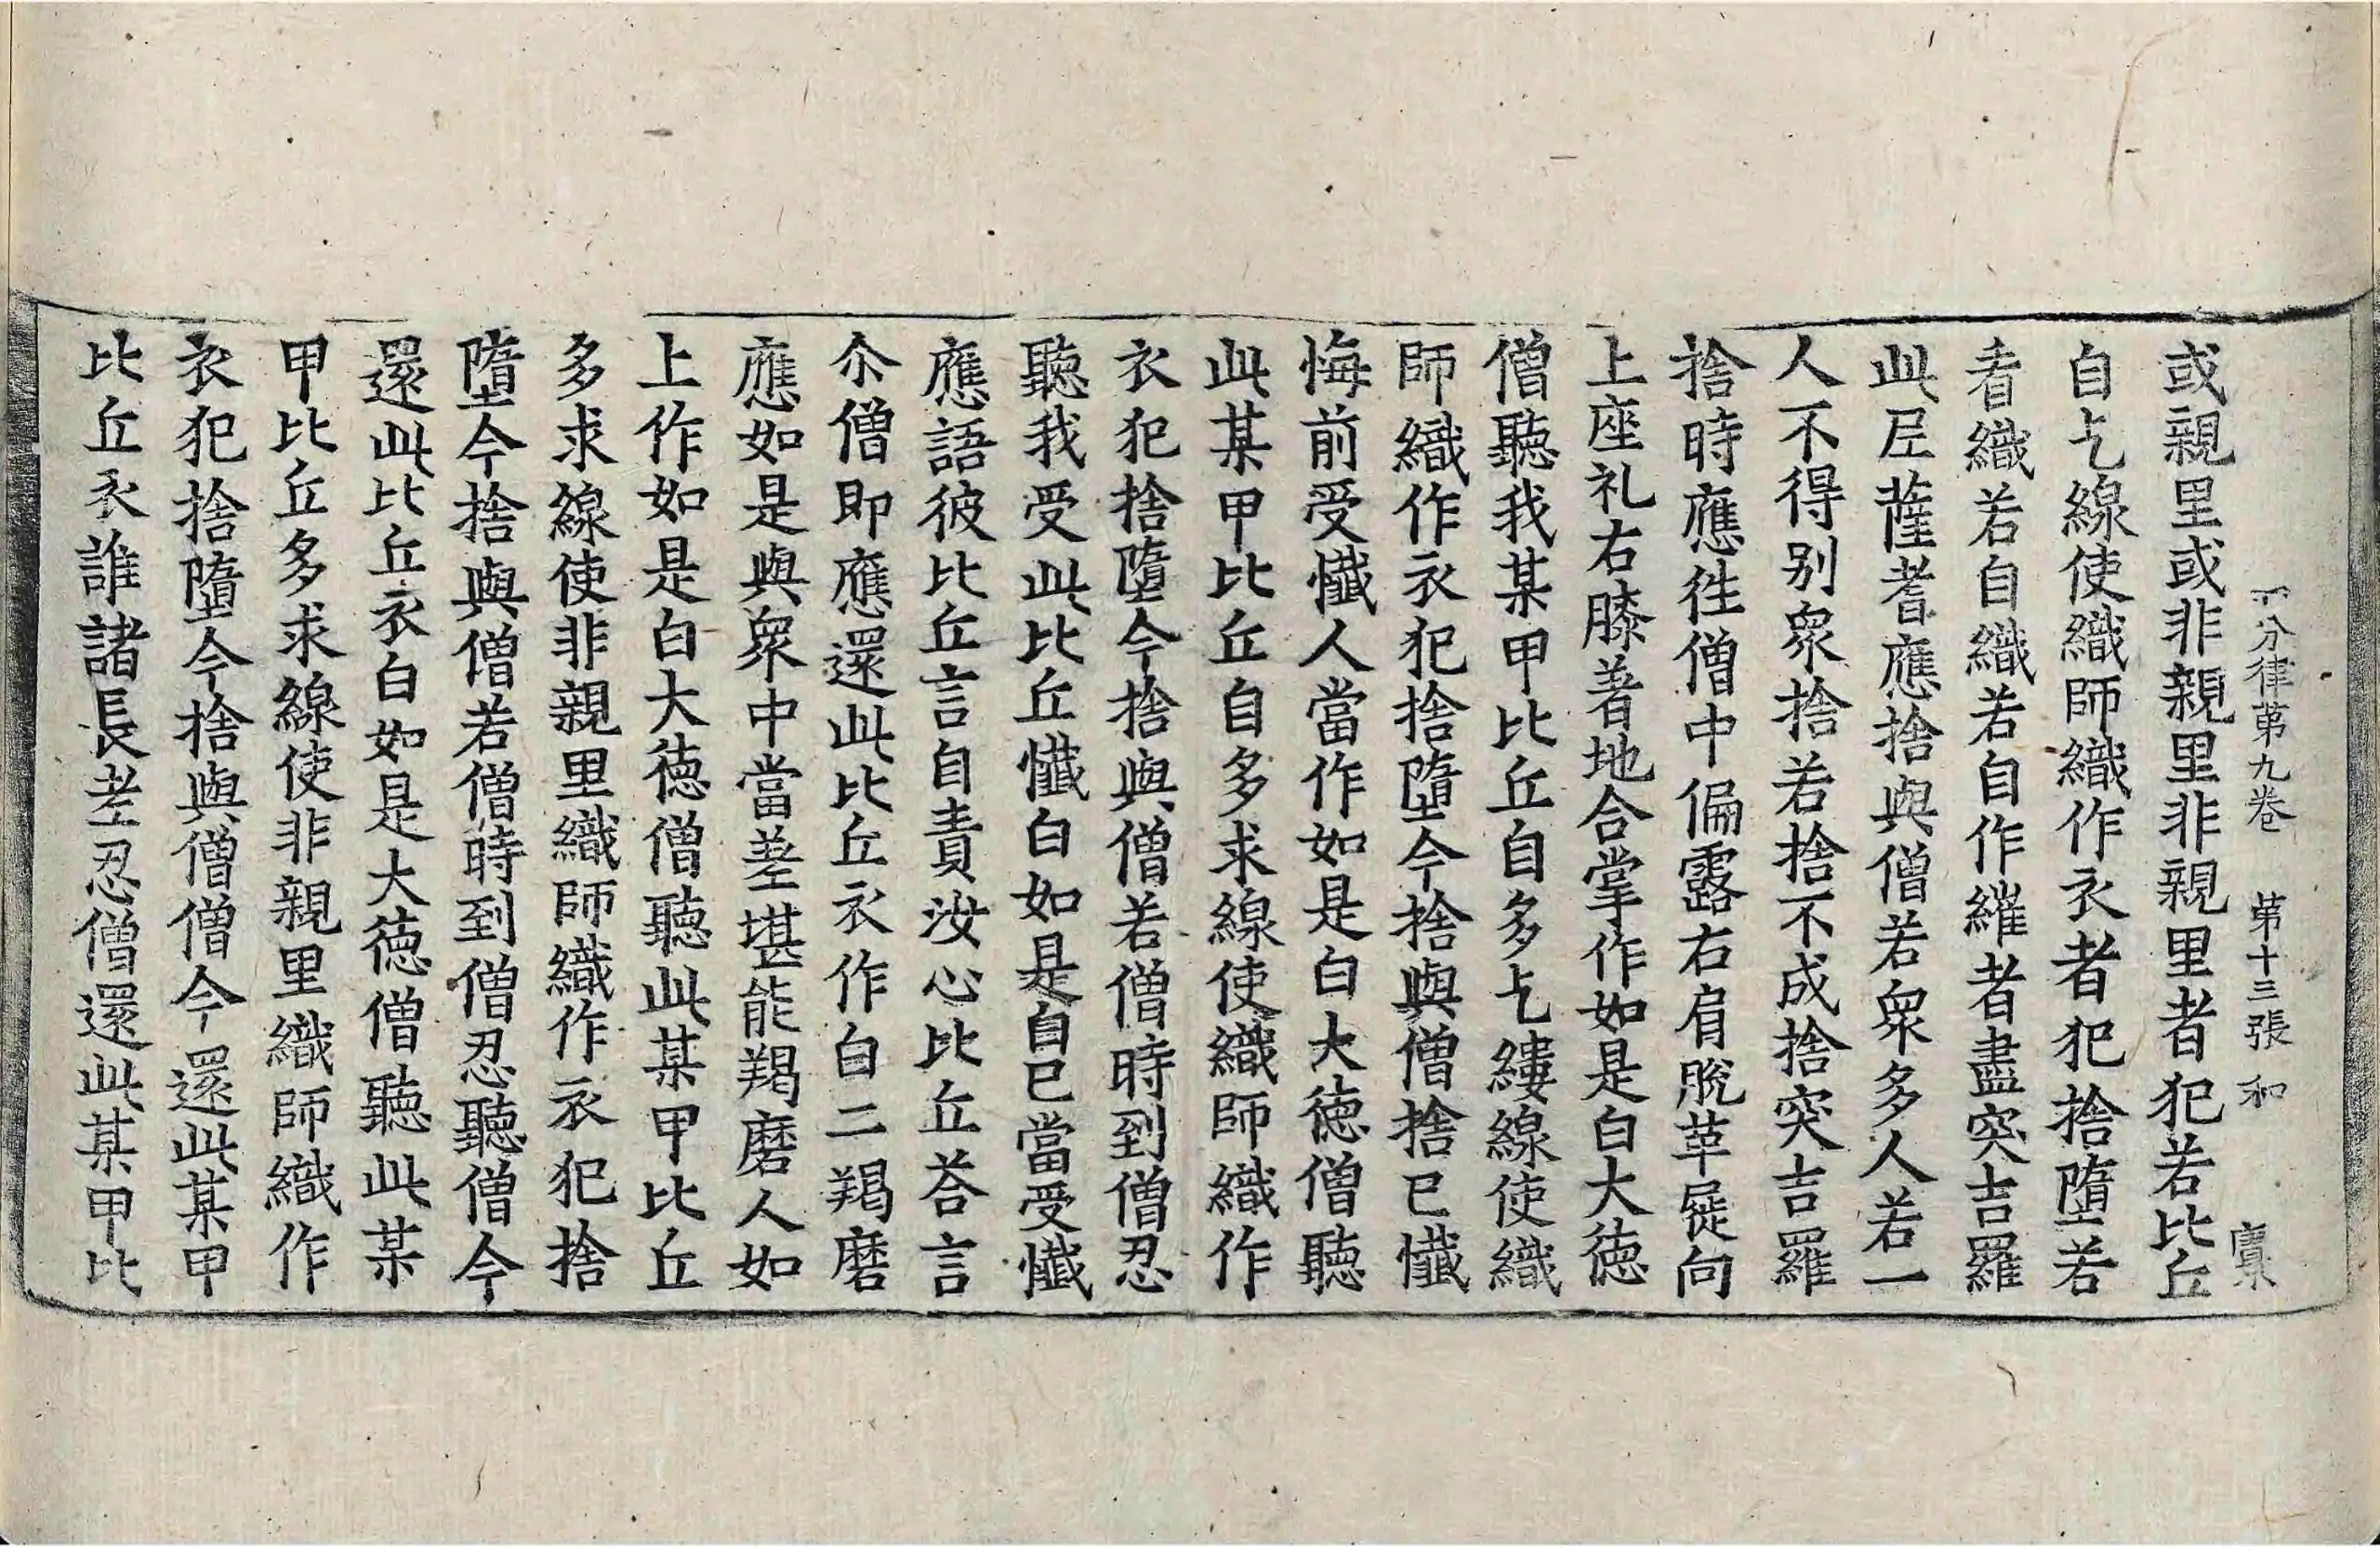 四分律第九卷 第十三張 和
或親里或非親里非親里者犯若比丘
自乞線使織師織作衣者犯捨墮若
看織若自織若自作繀者盡突吉羅
此尼薩耆應捨與僧若眾多人若一
人不得别眾捨若捨不成捨突吉羅
捨時應徃僧中偏露右肩脫革屣向
上座礼右膝著地合掌作如是白大德
僧聽我某甲比丘自多乞縷線使織
師織作衣犯捨墮今捨與僧捨已懺
悔前受懺人當作如是白大德僧聽
此某甲比丘自多求線使織師織作
衣犯捨墮今捨與僧若僧時到僧忍
聽我受此比丘懺白如是自已當受懺
應語彼比丘言自責汝心比丘荅言
尒僧即應還此比丘衣作白二羯磨
應如是與眾中當差堪能羯磨人如
上作如是白大德僧聽此某甲比丘
多求線使非親里織師織作衣犯捨
墮今捨與僧若僧時到僧忍聽僧今
還此比丘衣白如是大德僧聽此某
甲比丘多求線使非親里織師織作
衣犯捨墮今捨與僧僧今還此某甲
比丘衣誰諸長老忍僧還此某甲比